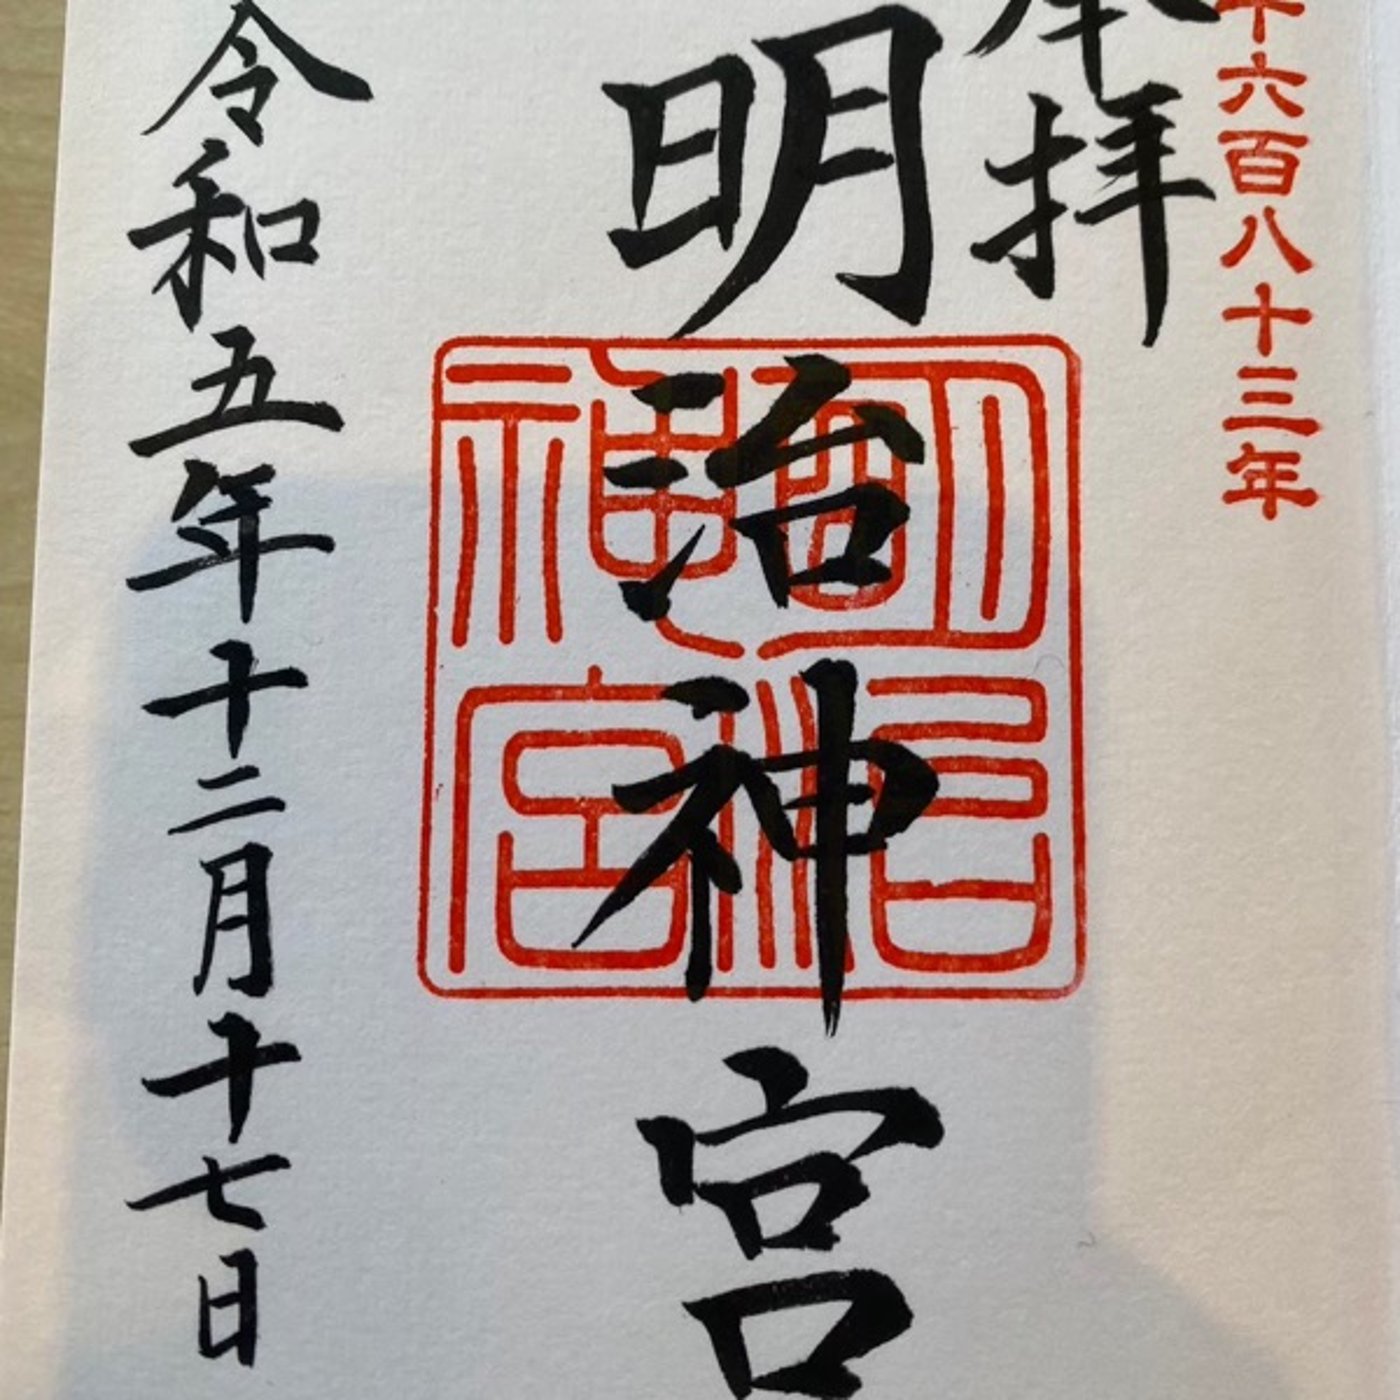 千六百八十三年
奉拝
明治神宮
明治神宮
令和五年十二月十七日